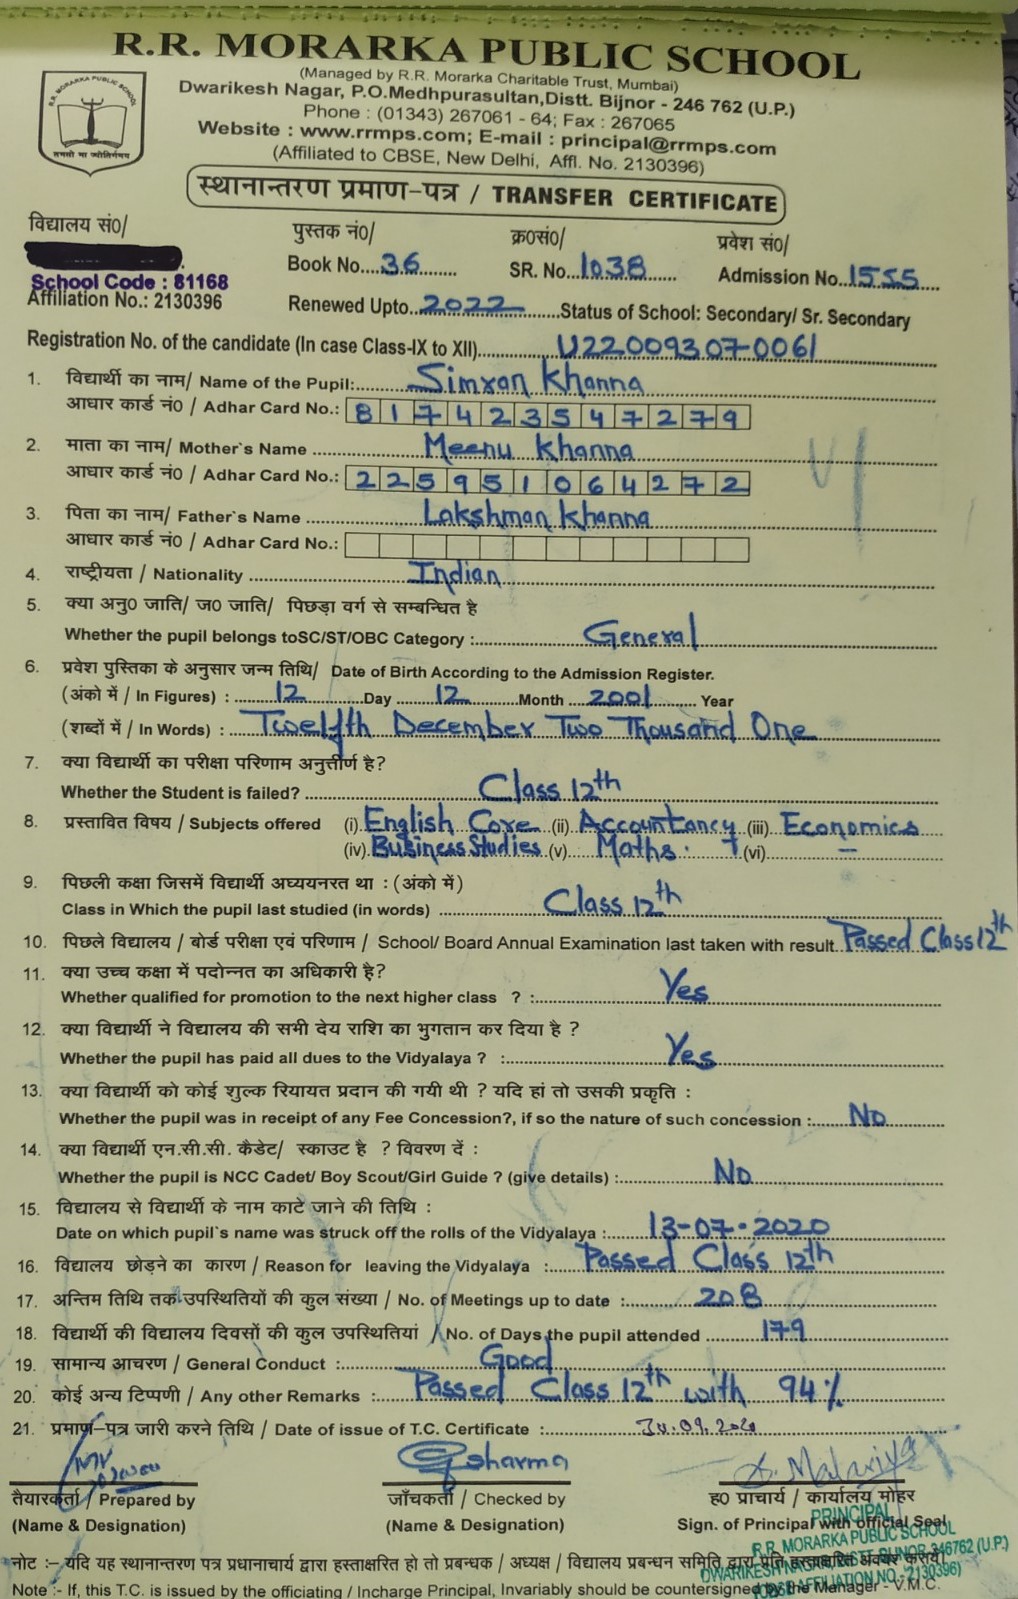 R.R. MORARKA PUBLIC SCHOOL
(Managed by R.R. Morarka Charitable Trust, Mumbai)
Dwarikesh Nagar, P.O.Medhpurasultan,Distt. Bijnor - 246 762 (U.P.)
Phone : (01343) 267061 - 64; Fax : 267065
Website : www.rrmps.com; E-mail : principal@rrmps.com
(Affiliated to CBSE, New Delhi, Affl. No. 2130396)
R.R. MORARKA PUBLIC SCHOOL
तमसो मा ज्योतिर्गमय
स्थानान्तरण प्रमाण-पत्र / TRANSFER CERTIFICATE
विद्यालय सं0/ पुस्तक नं0/ क्र0सं0/ प्रवेश सं0/
Book No....36........ SR. No...1038...... Admission No.1555....
School Code : 81168
Affiliation No.: 2130396 Renewed Upto..2022.......Status of School: Secondary/ Sr. Secondary
Registration No. of the candidate (In case Class-IX to XII)..........U22009307-0061
1. विद्यार्थी का नाम/ Name of the Pupil:........Simran Khanna
आधार कार्ड नं0 / Adhar Card No.: 817423547279
2. माता का नाम/ Mother`s Name ..........Meenu Khanna
आधार कार्ड नं0 / Adhar Card No.: 225951064272
3. पिता का नाम/ Father`s Name ..........Lakshman Khanna
आधार कार्ड नं0 / Adhar Card No.:
4. राष्ट्रीयता / Nationality ..........Indian
5. क्या अनु0 जाति/ ज0 जाति/ पिछड़ा वर्ग से सम्बन्धित है
Whether the pupil belongs toSC/ST/OBC Category :..........General
6. प्रवेश पुस्तिका के अनुसार जन्म तिथि/ Date of Birth According to the Admission Register.
(अंको में / In Figures) : ......12......Day ......12......Month ...2001...... Year
(शब्दों में / In Words) : ...Twelfth December Two Thousand One
7. क्या विद्यार्थी का परीक्षा परिणाम अनुत्तीर्ण है?
Whether the Student is failed? ..........Class 12th
8. प्रस्तावित विषय / Subjects offered (i) English Core (ii) Accountancy (iii) Economics
(iv) Business Studies (v) Maths. (vi) —
9. पिछली कक्षा जिसमें विद्यार्थी अध्ययनरत था : (अंको में)
Class in Which the pupil last studied (in words) ..........Class 12th
10. पिछले विद्यालय / बोर्ड परीक्षा एवं परिणाम / School/ Board Annual Examination last taken with result..Passed Class 12th
11. क्या उच्च कक्षा में पदोन्नत का अधिकारी है?
Whether qualified for promotion to the next higher class ? :..........Yes
12. क्या विद्यार्थी ने विद्यालय की सभी देय राशि का भुगतान कर दिया है ?
Whether the pupil has paid all dues to the Vidyalaya ? :..........Yes
13. क्या विद्यार्थी को कोई शुल्क रियायत प्रदान की गयी थी ? यदि हां तो उसकी प्रकृति :
Whether the pupil was in receipt of any Fee Concession?, if so the nature of such concession :......No
14. क्या विद्यार्थी एन.सी.सी. कैडेट/ स्काउट है ? विवरण दें :
Whether the pupil is NCC Cadet/ Boy Scout/Girl Guide ? (give details) :..........No
15. विद्यालय से विद्यार्थी के नाम काटे जाने की तिथि :
Date on which pupil`s name was struck off the rolls of the Vidyalaya :......13-07-2020
16. विद्यालय छोड़ने का कारण / Reason for leaving the Vidyalaya :.....Passed Class 12th
17. अन्तिम तिथि तक उपस्थितियों की कुल संख्या / No. of Meetings up to date :..........208
18. विद्यार्थी की विद्यालय दिवसों की कुल उपस्थितियां / No. of Days the pupil attended ........179
19. सामान्य आचरण / General Conduct :..........Good
20. कोई अन्य टिप्पणी / Any other Remarks :.....Passed Class 12th with 94%
21. प्रमाण-पत्र जारी करने तिथि / Date of issue of T.C. Certificate :..........
Sharma
तैयारकर्ता / Prepared by जाँचकर्ता / Checked by ह0 प्राचार्य / कार्यालय मोहर
(Name & Designation) (Name & Designation) Sign. of Principal with official Seal
PRINCIPAL
R. R. MORARKA PUBLIC SCHOOL
DWARIKESH NAGAR DISTT. BIJNOR-246762 (U.P.)
(CBSE AFFILIATION NO.-2130396)
नोट :- यदि यह स्थानान्तरण पत्र प्रधानाचार्य द्वारा हस्ताक्षरित हो तो प्रबन्धक / अध्यक्ष / विद्यालय प्रबन्धन समिति द्वारा प्रति हस्ताक्षरित अवश्य करायें।
Note :- If, this T.C. is issued by the officiating / Incharge Principal, Invariably should be countersigned by the Manager - V.M.C.